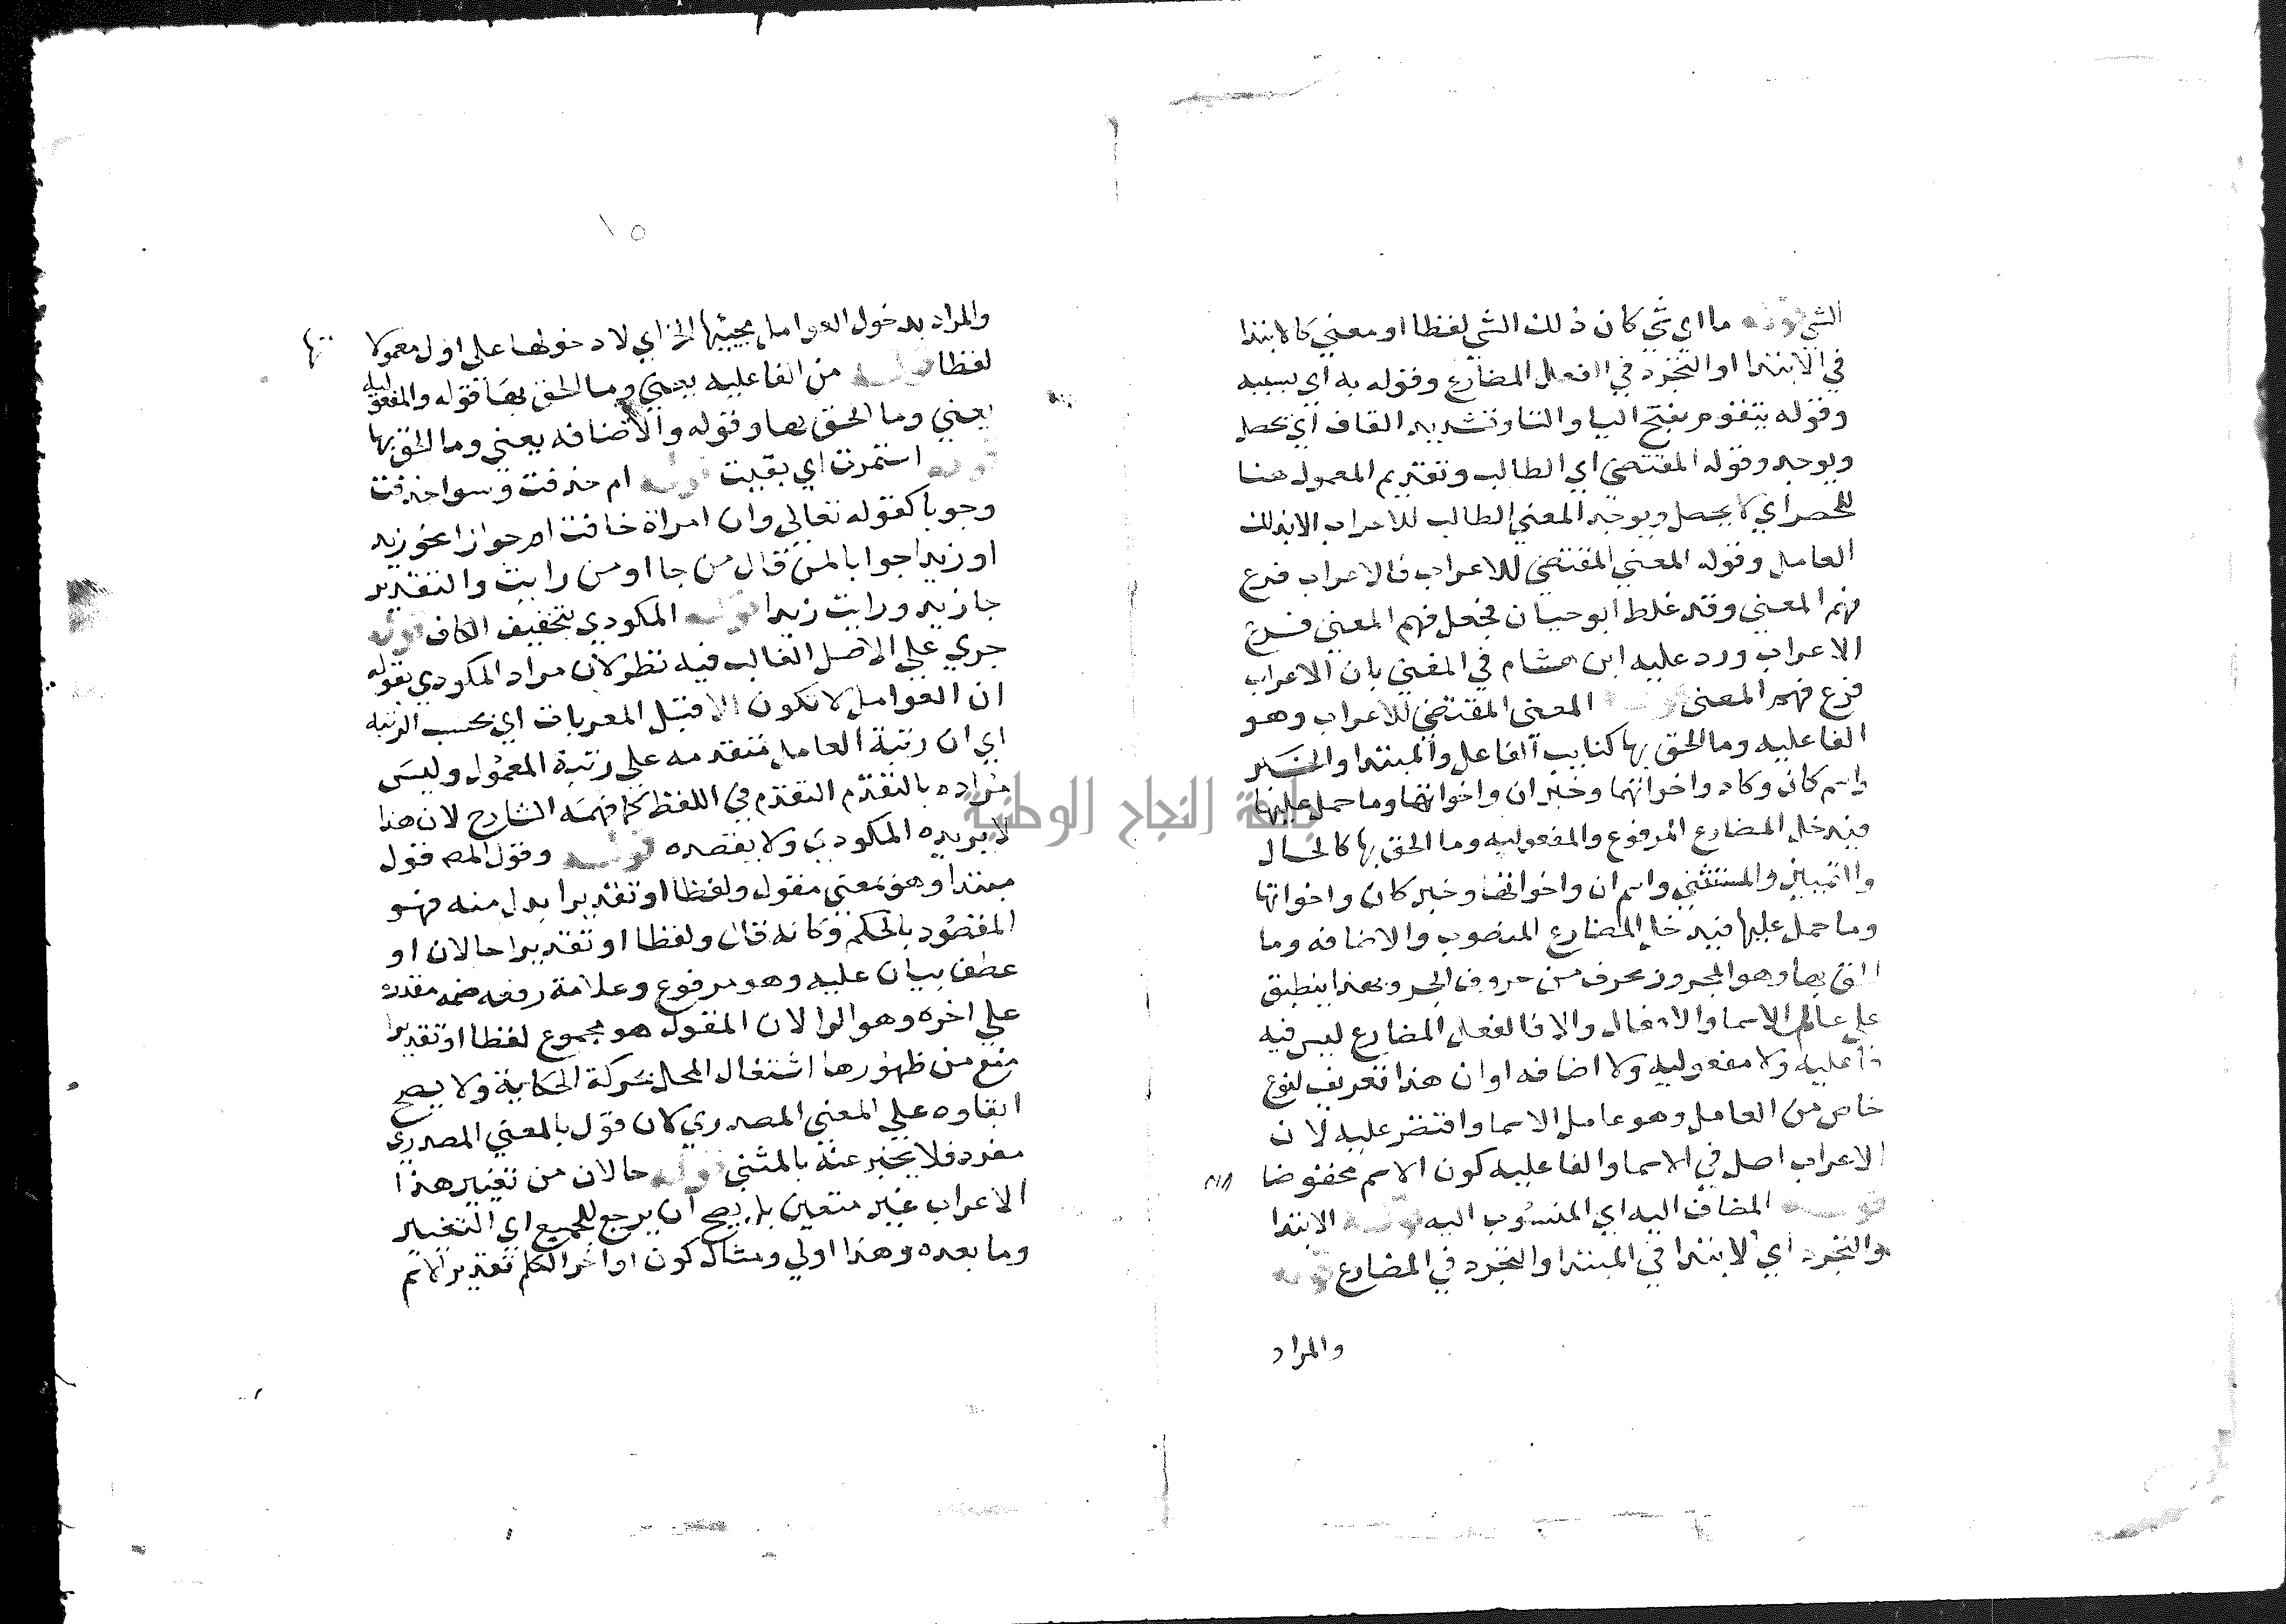 الشي قوله ما اي شي كان ذلك الشي لفظا او معني كالابتدا
في الابتدا او التجرد في الفعل المضارع وقوله به اي بسببه
وقوله يتقوم بفتح اليا والتا وتشديد القاف اي تحصل
ويوجد وقوله المقتضي اي الطالب وتقديم المعمول هنا
للحصر اي لا يحصل ويوجد المعني الطالب للاعراب الا بذلك
العامل وقوله المعني المقتضي للاعراب فالاعراب فرع
فهم المعني وقد غلط ابو حيان فجعل فهم المعني فرع
الاعراب ورد عليه ابن هشام في المغني بان الاعراب
فرع فهم المعنى قوله المعنى المقتضي للاعراب وهو
الفاعليه وما الحق بها كنايب الفاعل والمبتدا والخبر
واسم كان وكاد واخواتهما وخبر ان واخواتها وما حمل عليها
فيدخل المضارع المرفوع والمفعوليه وما الحق بها كالحال
والتمييز والمستثني واسم ان واخواتها وخبر كان واخواتها
وما حمل عليها فيدخل المضارع المنصوب والاضافه وما
الحق بها وهو المجرور بحرف من حروف الجر وبهذا ينطبق
على عامل الاسما والافعال والا فالفعل المضارع ليس فيه
فاعليه ولا مفعوليه ولا اضافه او ان هذا تعريف لنوع
خاص من العامل وهو عامل الاسما واقتصر عليه لان
الاعراب اصل في الاسما والفاعليه كون الاسم مخفوضا
قوله المضاف اليه اي المنسوب اليه قوله الابتدا
والتجرد اي الابتدا في المبتدا والتجرد في المضارع قوله
والمراد
١٥
والمراد بدخول العوامل مجيئها الخ اي لا دخولها على اول معمولا
تها
لفظا قوله من الفاعليه يعني وما الحق بها قوله والمفعوليه
يعني وما الحق بها وقوله والاضافه يعني وما الحق بها
قوله استمرت اي بقيت قوله ام حذفت وسوا حذفت
وجوبا كقوله تعالي وان امراة خافت ام جوازا نحو زيد
او زيدا جوابا لمن قال من جا او من رايت والتقدير
جا زيد ورايت زيدا قوله المكودي بتخفيف الكاف قوله
جري علي الاصل الغالب فيه نظر لان مراد المكودي بقوله
ان العوامل لا تكون الا قبل المعربات اي بحسب الرتبه
اي ان رتبة العامل متقدمه علي رتبة المعمول وليس
مراده بالتقدم التقدم في اللفظ كما فهمه الشارح لان هذا
لا يريده المكودي ولا يقصده قوله وقول المص قول
مبتدا وهو بمعني مقول ولفظا او تقديرا بدل منه فهو
المقصود بالحكم وكانه قال ولفظا او تقديرا حالان او
عطف بيان عليه وهو مرفوع وعلامة رفعه ضمه مقدره
علي اخره وهو الرا لان المقول هو مجموع لفظا او تقديرا
منع من ظهورها اشتغال المحل بحركة الحكاية ولا يصح
ابقاوه علي المعني المصدري لان قول بالمعني المصدري
مفرد فلا يخبر عنه بالمثني قوله حالان من تغيير هذا
الاعراب غير متعين بل يصح ان يرجع للجميع اي التغيير
وما بعده وهذا اولي ومثال كون اواخر الكلم تقديرا لام
جامعة النجاح الوطنية